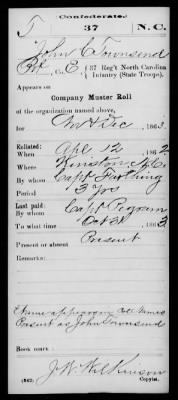 Confederate.
T 37 N.C.
John C Townsend
Pvt, Co. E, 37 Reg't North Carolina
Infantry (State Troops).
Appears on
Company Muster Roll
of the organization named above,
for Nov & Dec, 1863.
Enlisted:
When Apl 12, 1862
Where Kinston N.C.
By whom Capt Farthing
Period 3 yrs
Last paid:
By whom Capt Pegram
To what time Oct 31, 1863.
Present or absent Present
Remarks:
Present as John Townsend
Book mark:
J. W. Wilkinson
(642) Copyist.